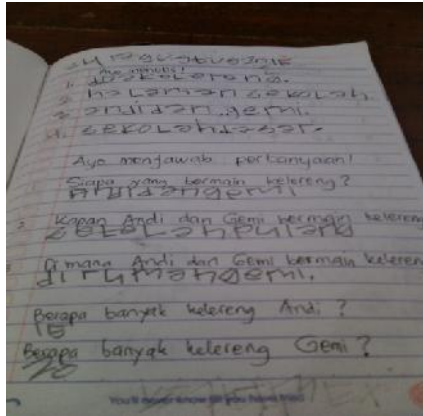 Ayo menulis!
1. kelereng.
2. halaman sekolah.
3. andidan gemi.
4. sekolahdasar.
Ayo menjawab pertanyaan!
Siapa yang bermain kelereng?
andidangemi
2 Kapan Andi dan Gemi bermain kelereng
setelahpulang
Dimana Andi dan Gemi bermain kelereng
dirumahgemi.
Berapa banyak kelereng Andi?
15
Berapa banyak kelereng Gemi?
20
You'll never know till you have tried